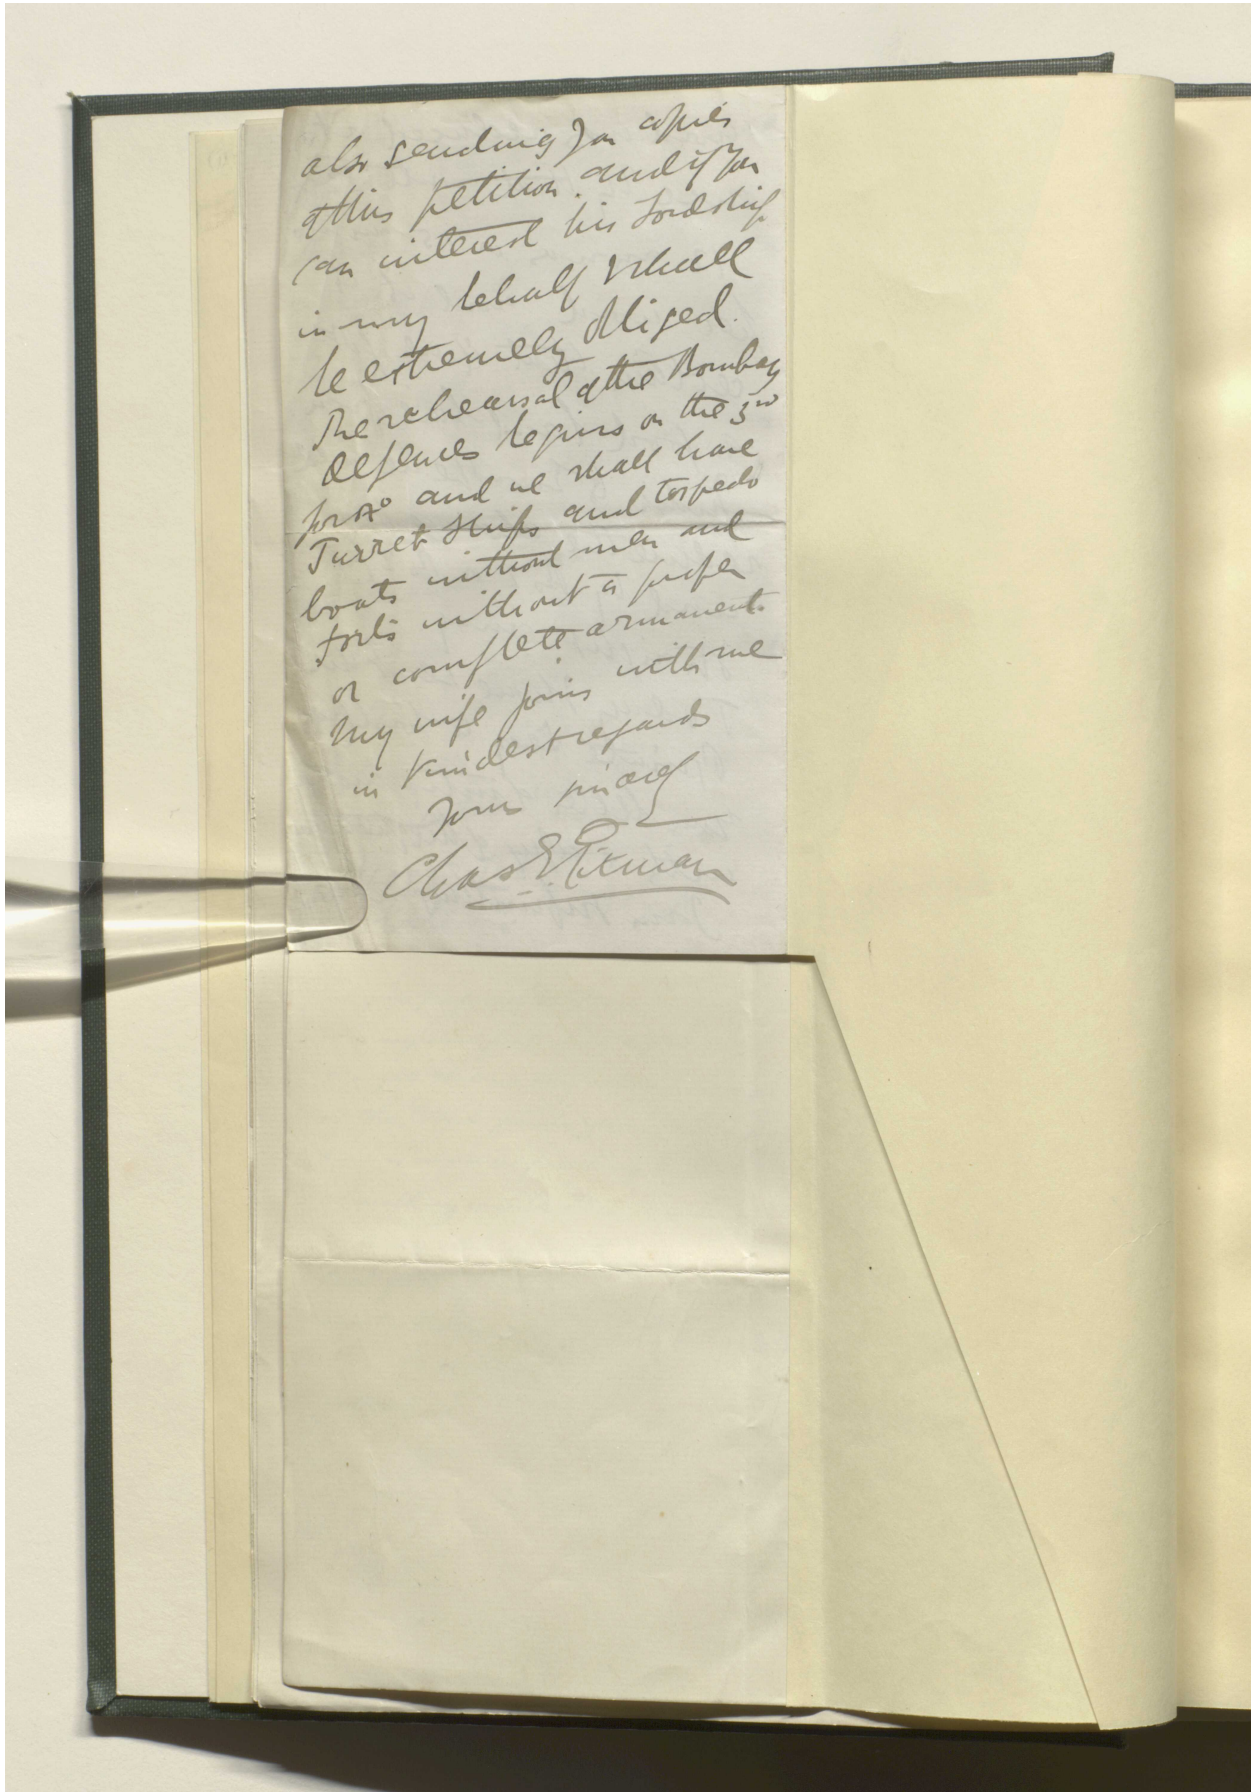 also sending you copies
of this petition and if you
can interest his Lordship
in my behalf I shall
be extremely obliged.
The rehearsal of the Bombay
defences begins on the 3rd
and we shall have
Turret Ships and torpedo
boats without men and
forts without a proper
or complete armament.
My wife joins with me
in kindest regards
Yours sincerely
Chas E Pitman